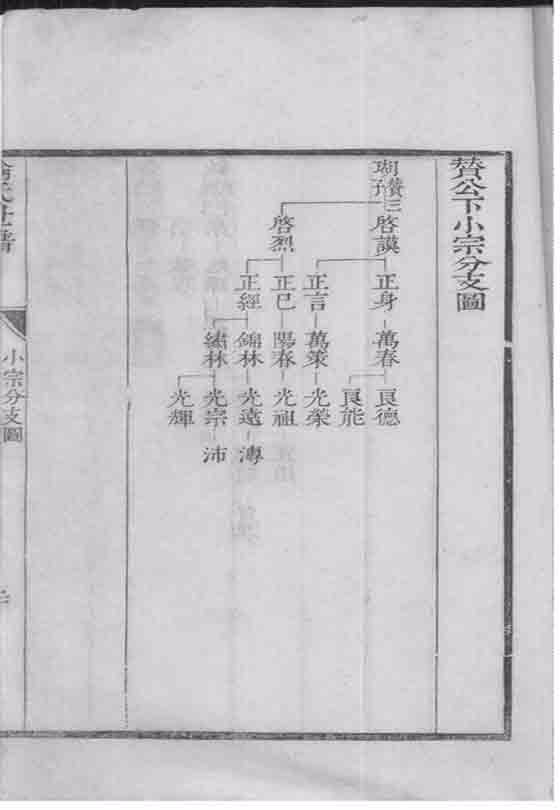 贊公下小宗分支圖
瑚孫贊三
啓謨
啓烈
正身
正言
正已
正經
萬春
萬策
陽春
錦林
繡林
良德
良能
光榮
光祖
光遠
光宗
光輝
溥
沛
氏世譜
小宗分支圖